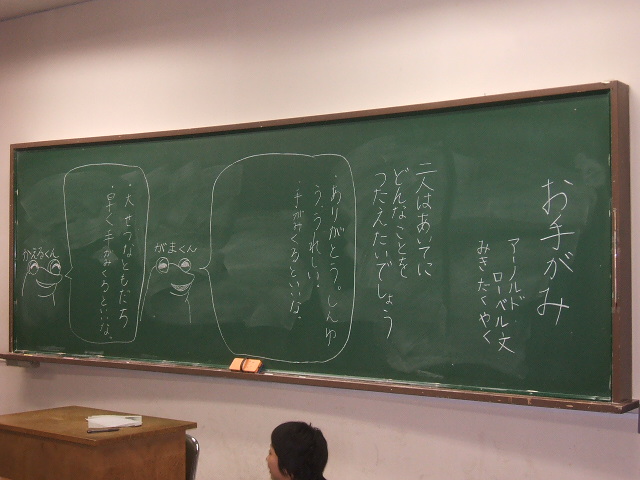 お手がみ
アーノルド
ローベル・文
みきたくやく
二人はあいてに
どんなことを
つたえたいでしょう
・ありがとう。しんゆ
う、うれしい。
・手がみくるといいな。
がまくん
・大せつなともだち
・早く手がみくるといいな。
かえるくん